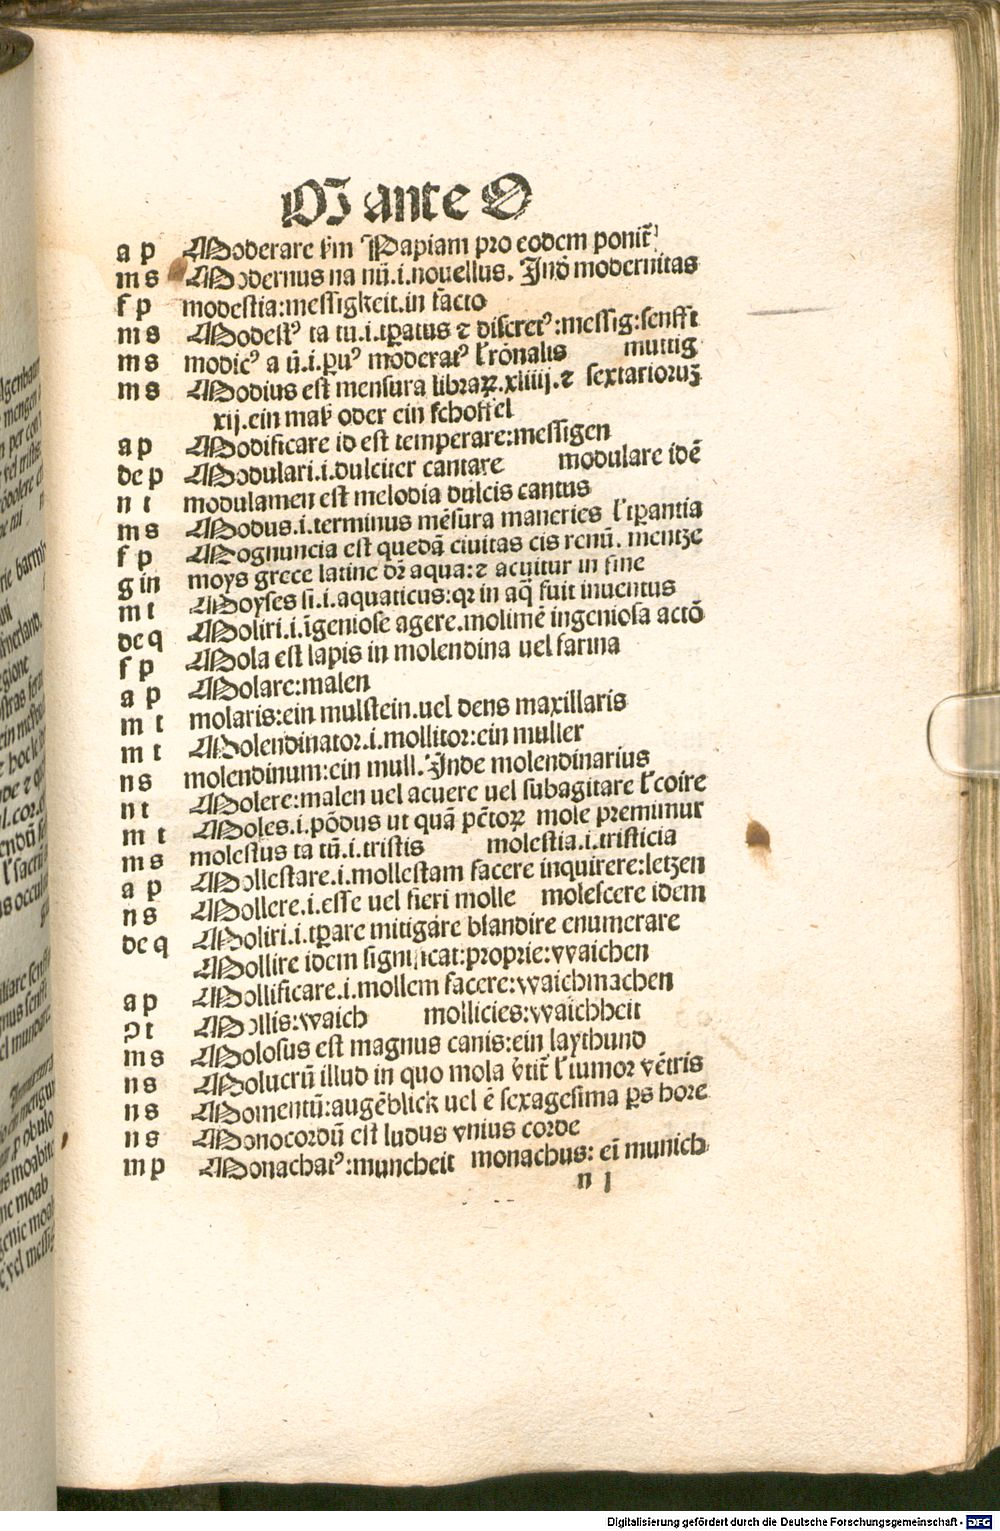 M ante O
a p Moderare ẜm Papiam pro eodem ponit᷑
m s Modernus na nū.i.novellus. Inđ modernitas
f p modestia:messigkeit.in facto
m s Modestꝰ ta tu.i.tꝑatus ⁊ discretꝰ:messig:senfft
m s modicꝰ a ū.i.ꝑuꝰ moderatꝰ ł rōnalis muttig
m s Modius est mensura libraꝝ.xliiij.⁊ sextarioruʒ
xij.ein maß oder ein schoffel
a p Modificare id est temperare:messigen
de p Modulari.i.dulciter cantare modulare idē
n t modulamen est melodia dulcis cantus
m s Modus.i.terminus mēsura maneries ł tꝑantia
f p Mognuncia est quedā civitas cis renū. mentze
g in moys grece latine dr̄ aqua:⁊ acuitur in fine
m t Moyses si.i.aquaticus:qꝛ in aq̄ fuit inventus
de q Moliri.i.īgeniose agere.molimē ingeniosa actō
f p Mola est lapis in molendina uel farina
a p Molare:malen
m t molaris:ein mulstein.uel dens maxillaris
m t Molendinator.i.mollitor:ein muller
n s molendinum:ein mull.Inde molendinarius
n t Molere:malen uel acuere uel subagitare ł coire
m t Moles.i.pōdus ut quā pc̄toꝝ mole premimur
m s molestus ta tū.i.tristis molestia.i.tristicia
a p Mollestare.i.mollestam facere inquirere:letzen
n s Mollere.i.esse uel fieri molle molescere idem
de q Moliri.i.tꝑare mitigare blandire enumerare
Mollire idem significat:proprie:waichen
a p Mollificare.i.mollem facere:waichmachen
ↄ t Mollis:waich mollicies:waichheit
m s Molosus est magnus canis:ein laythund
n s Molucrū illud in quo mola v̄tit᷑ ł tumor vētris
n s Momentū:augēblick uel ē sexagesima ꝑs hore
n s Monocordū est ludus vnius corde
m p Monachatꝰ:muncheit monachus: eī munich
n j
Digitalisierung gefördert durch die Deutsche Forschungsgemeinschaft - DFG